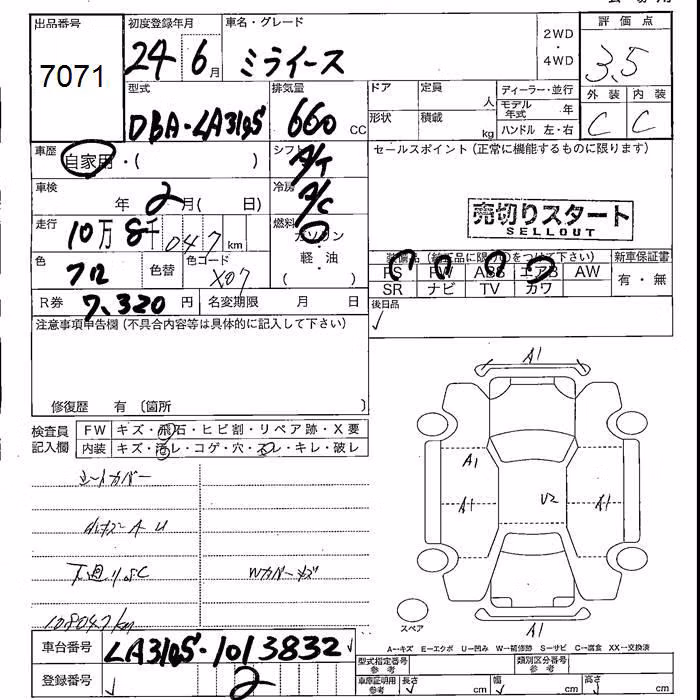 出品番号
7071
初度登録年月
24 6月
車名・グレード
ミライース
2WD
・
4WD
評価点
3.5
外装 内装
C C
型式
DBA-LA310S
排気量
660 CC
ドア 定員
人
形状 積載
kg
ディーラー・並行
モデル年式 年
ハンドル 左・右
車歴
自家用・( )
シフト
A/T
セールスポイント（正常に機能するものに限ります）
売切りスタート
SELLOUT
車検
年 2月( 日)
冷房
A/C
走行
10万8千047km
燃料
ガソリン
・
軽・油
( )
色
クロ
色替
色コード
X07
装備品（純正品に限り○をつけて下さい）
PS PW ABS エアB AW
SR ナビ TV カワ
新車保証書
有・無
R券 7,320円
名変期限 月 日
後日品
✓
注意事項申告欄（不具合内容等は具体的に記入して下さい）
修復歴 有〔箇所 〕
検査員記入欄
FW キズ・飛石・ヒビ割・リペア跡・X要
内装 キズ・汚レ・コゲ・穴・スレ・キレ・破レ
シートカバー
小キズ A U
下廻りSC
Wカバーキズ
108047km
A1
A1
A1
U2
A1
A1
スペア
A→キズ E→エクボ U→凹み W→補修跡 S→サビ C→腐食 XX→交換済
車台番号
LA310S-1013832
登録番号
2
型式指定番号
参考
類別区分番号
参考
車庫証明用
参考
長さ cm 幅 cm 高さ cm